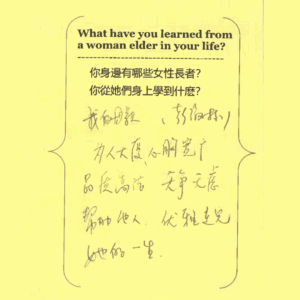 What have you learned from
a woman elder in your life?
你身邊有哪些女性長者?
你從她們身上學到什麽?
我的母親
为人大度、心胸宽广
品质高洁 无争无虑
帮助他人 优雅走完
她的一生.